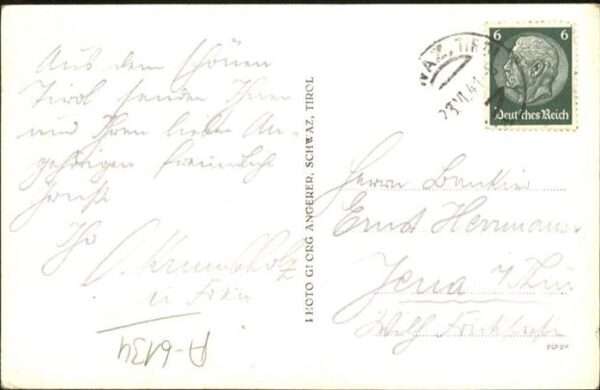 Aus dem schönen
Tirol senden Ihnen
und Ihren lieben An-
gehörigen freundliche
Grüße
Ihr
u Frau
A-6134
PHOTO GEORG ANGERER, SCHWAZ, TIROL
WAZ, TIR
23.VI.41
6 6
Deutsches Reich
Herrn Bankier
Ernst Herrmann
Jena